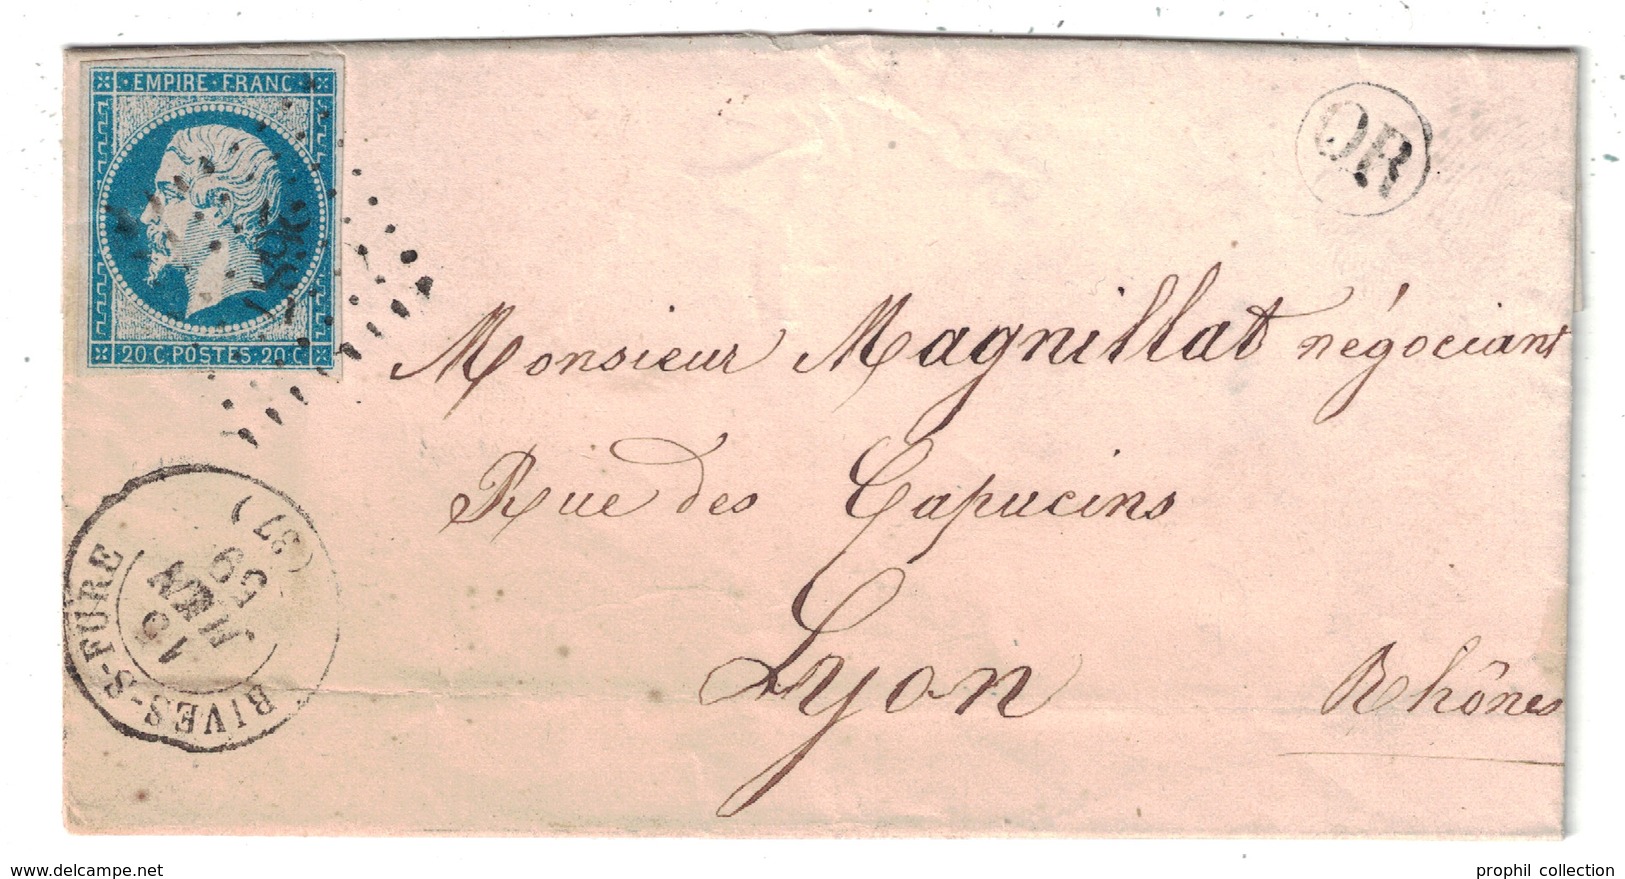 EMPIRE · FRANC
20 C · POSTES · 20 C
OR
Monsieur Magnillat négociant
Rue des Capucins
Lyon
Rhônes
RIVES-S-FURE
(37)
15
JUIN
59
prophil collection